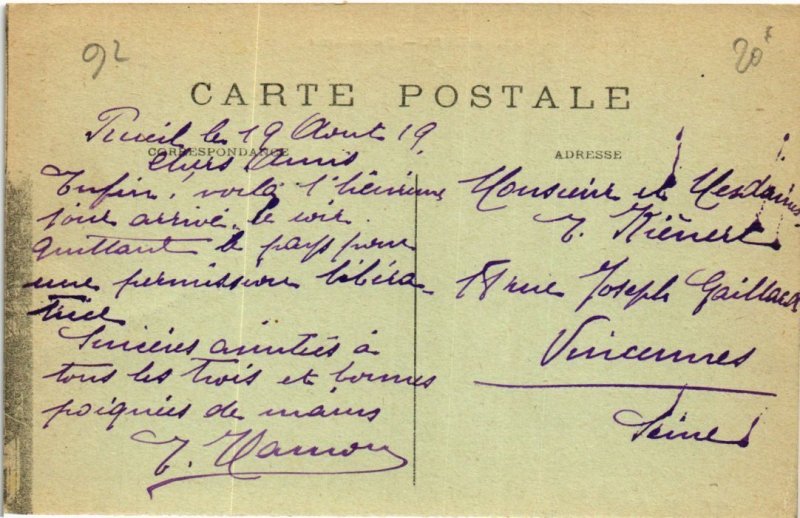 92
20
CARTE POSTALE
le 19 Aout 19
CORRESPONDANCE
Chers Amis
Enfin, voilà l'
jour arrivé, le
quittant le pays pour
une permission libéra-
trice
Sincères amitiés à
tous les trois et bonnes
poignées de mains
Hamon
ADRESSE
Monsieur et Mesdames
Kiénert
18 rue Joseph Gaillard
Vincennes
Seine